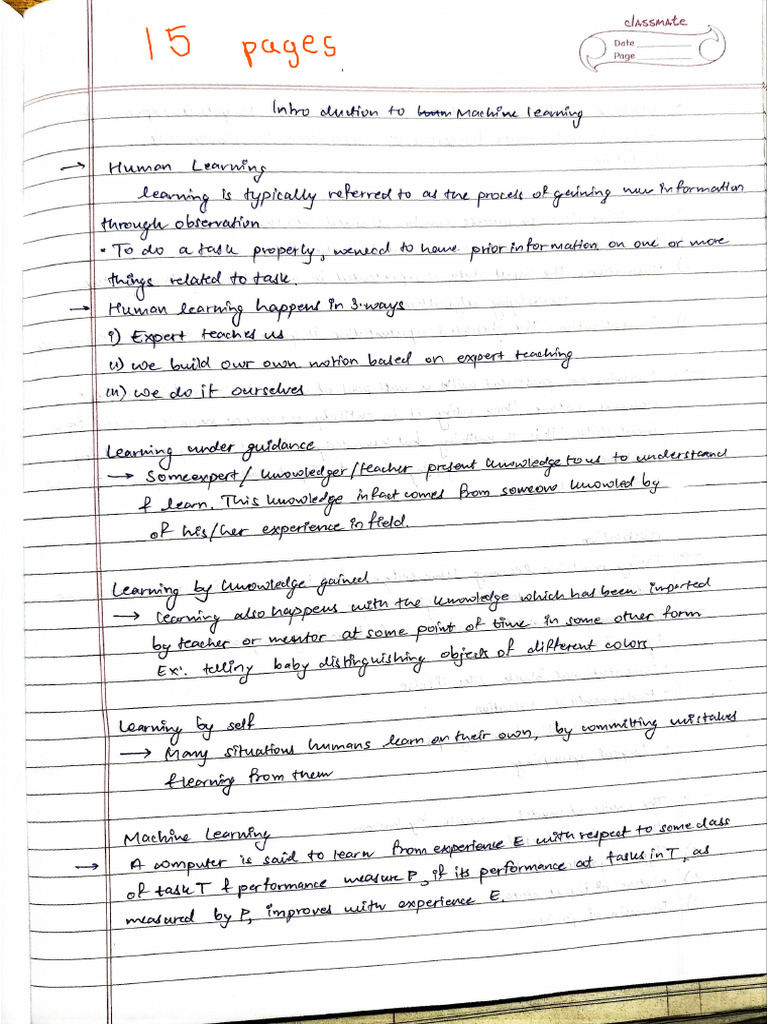 classmate
Date
Page
15 pages
Introduction to Machine learning
→ Human Learning
learning is typically referred to as the process of gaining new information
through observation
• To do a task properly, we need to have prior information on one or more
things related to task.
→ Human learning happens in 3 ways
i) Expert teaches us
ii) we build our own notion based on expert teaching
iii) we do it ourselves
Learning under guidance
→ Some expert/ knowledger/teacher present knowledge to us to understand
& learn. This knowledge infact comes from someow knowled by
of his/her experience in field.
Learning by knowledge gained
→ Learning also happens with the knowledge which has been imparted
by teacher or mentor at some point of time in some other form
Ex: telling baby distinguishing objects of different colors.
Learning by self
→ Many situations humans learn on their own, by committing mistakes
& learning from them
Machine Learning
→ A computer is said to learn from experience E with respect to some class
of task T & performance measure P, if its performance at tasks in T, as
measured by P, improves with experience E.